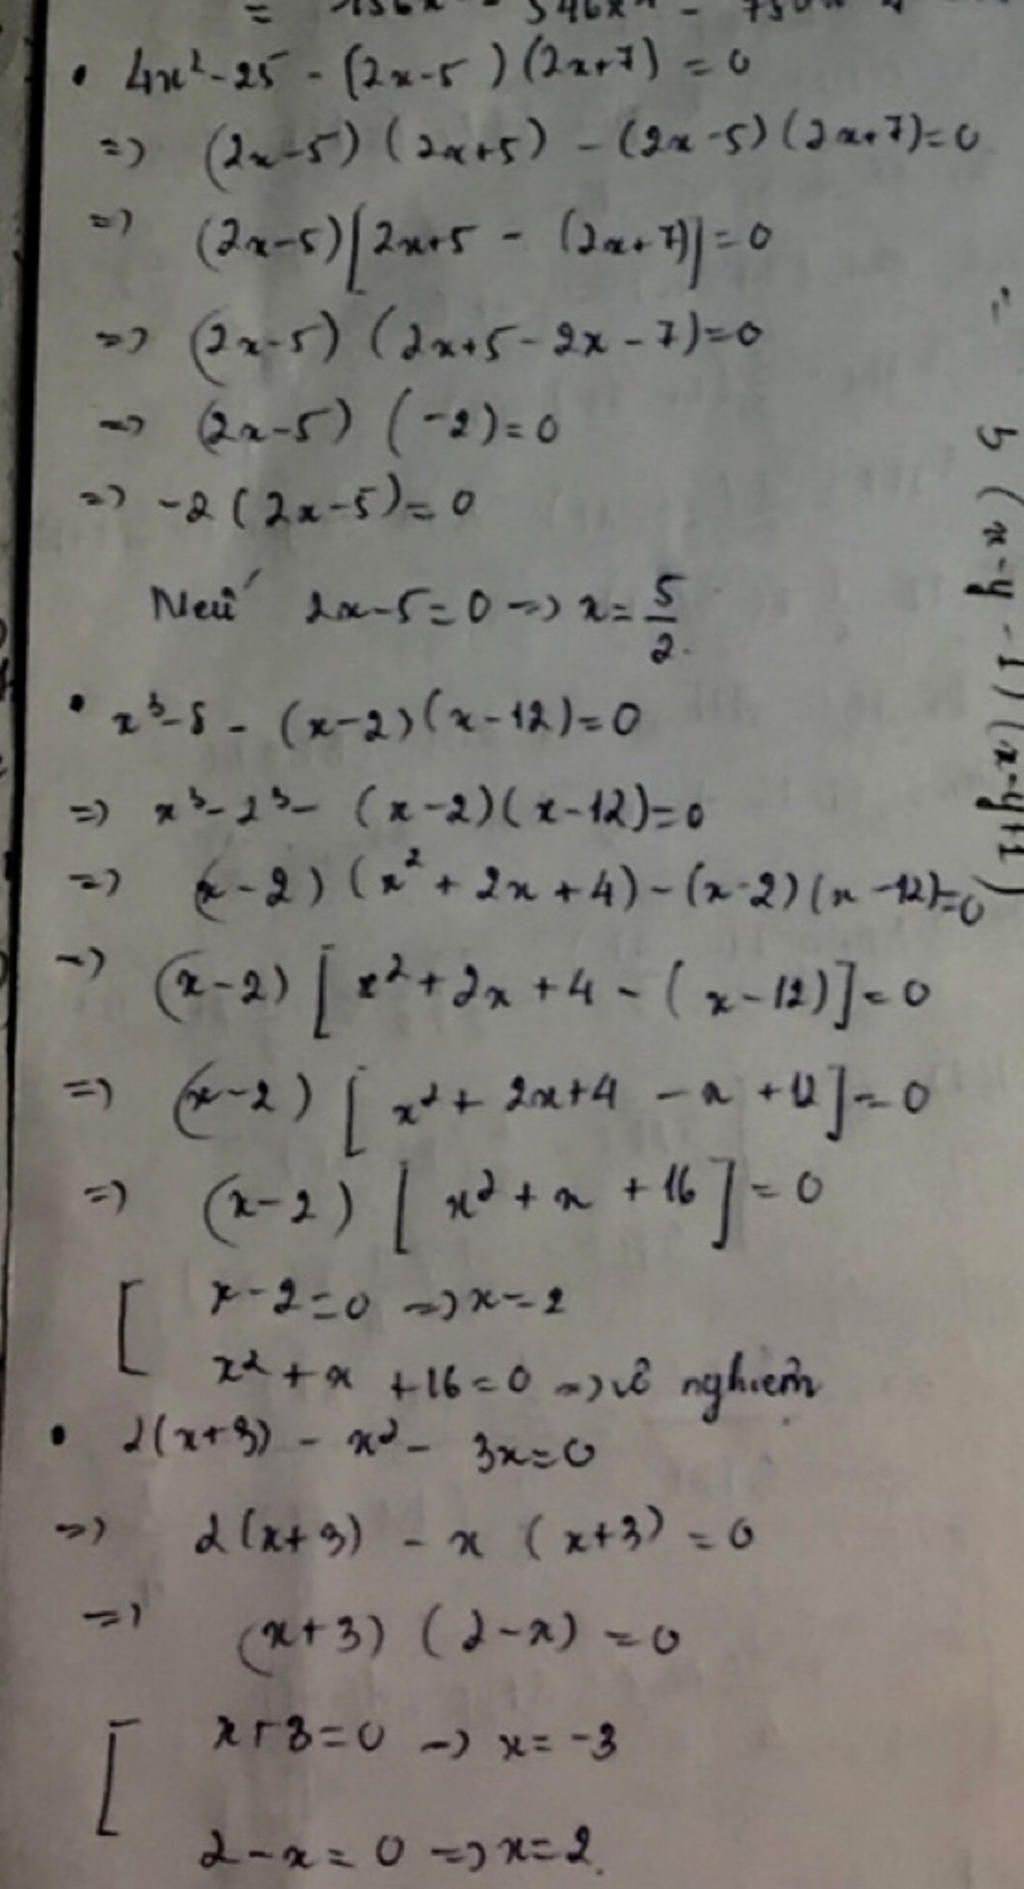 • 4x² - 25 - (2x-5)(2x+7) = 0
=> (2x-5)(2x+5) - (2x-5)(2x+7) = 0
=> (2x-5)[2x+5 - (2x+7)] = 0
=> (2x-5)(2x+5-2x-7) = 0
=> (2x-5)(-2) = 0
=> -2(2x-5) = 0
Nếu 2x-5=0 => x = 5/2.
• x³-8 - (x-2)(x-12) = 0
=> x³-2³- (x-2)(x-12) = 0
=> (x-2)(x²+2x+4) - (x-2)(x-12) = 0
=> (x-2)[x²+2x+4 - (x-12)] = 0
=> (x-2)[x²+2x+4 - x + 12] = 0
=> (x-2)[x²+x+16] = 0
[ x-2=0 => x=2
x²+x+16=0 => vô nghiệm
• 2(x+3) - x² - 3x=0
=> 2(x+3) - x(x+3) = 0
=> (x+3)(2-x) = 0
[ x+3=0 => x=-3
2-x=0 => x=2.
(x-y-1)(x-y+1)